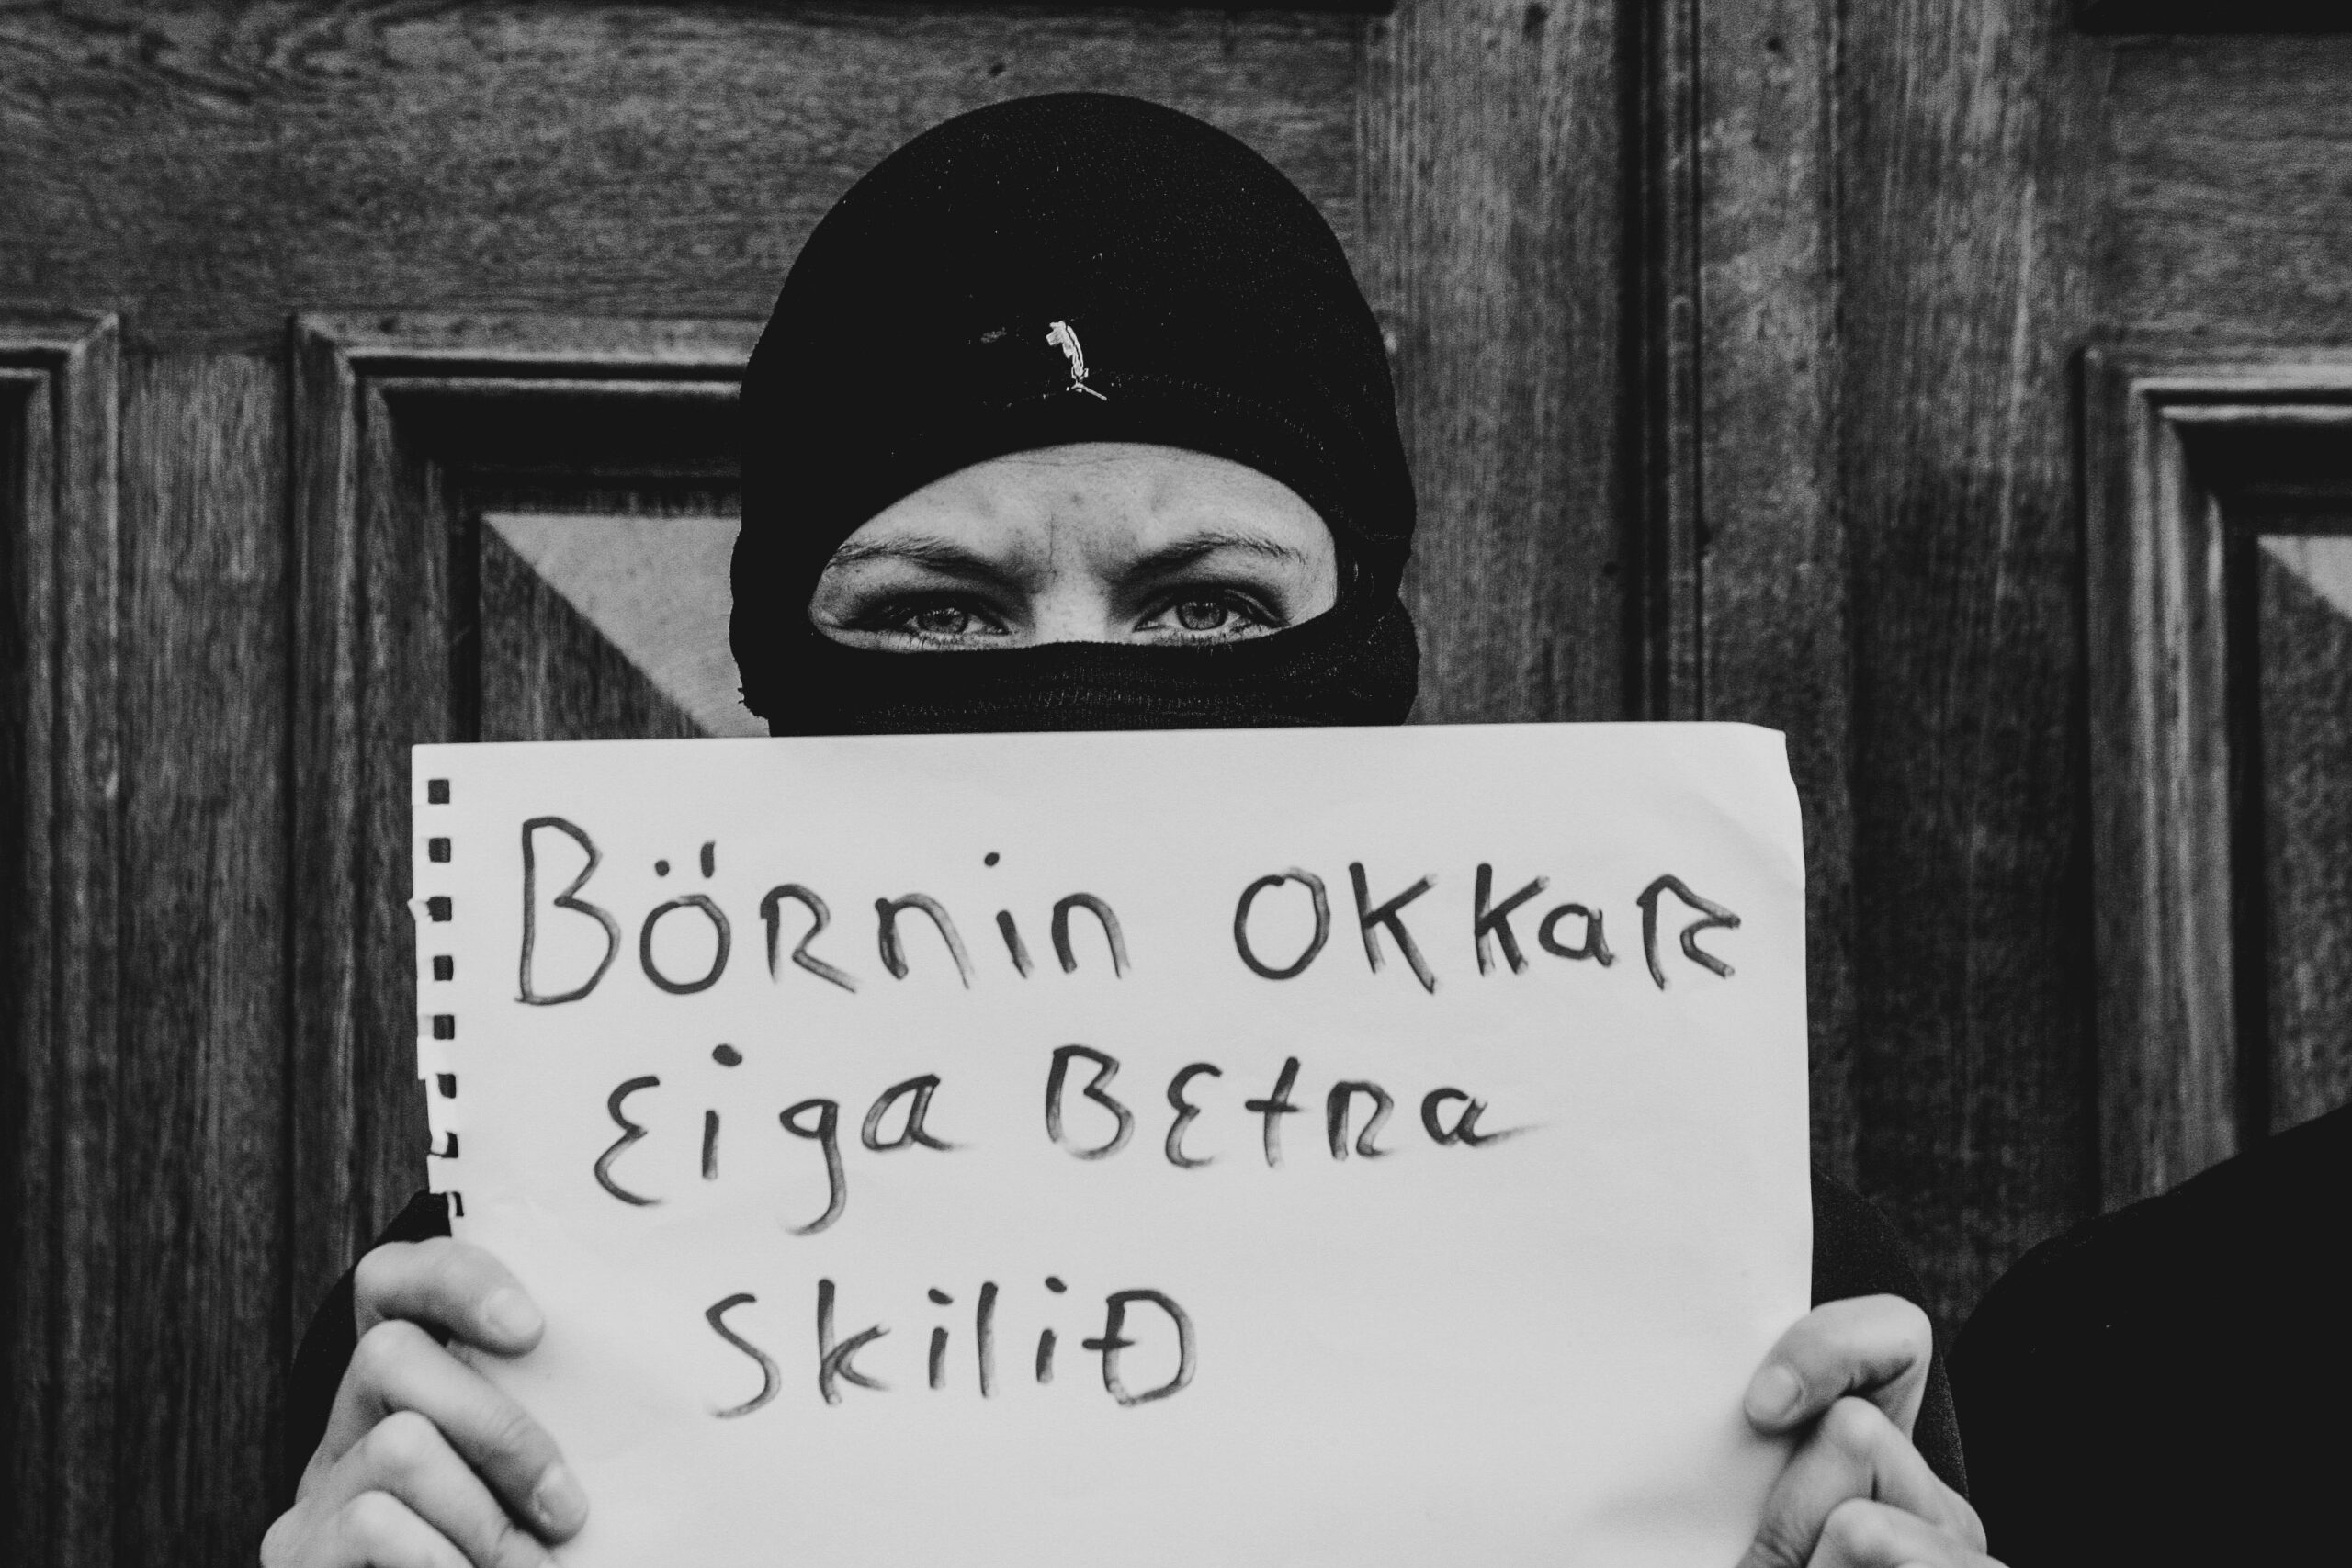 BÖRnin OKKaR
Eiga BEtRa
SkiliÐ